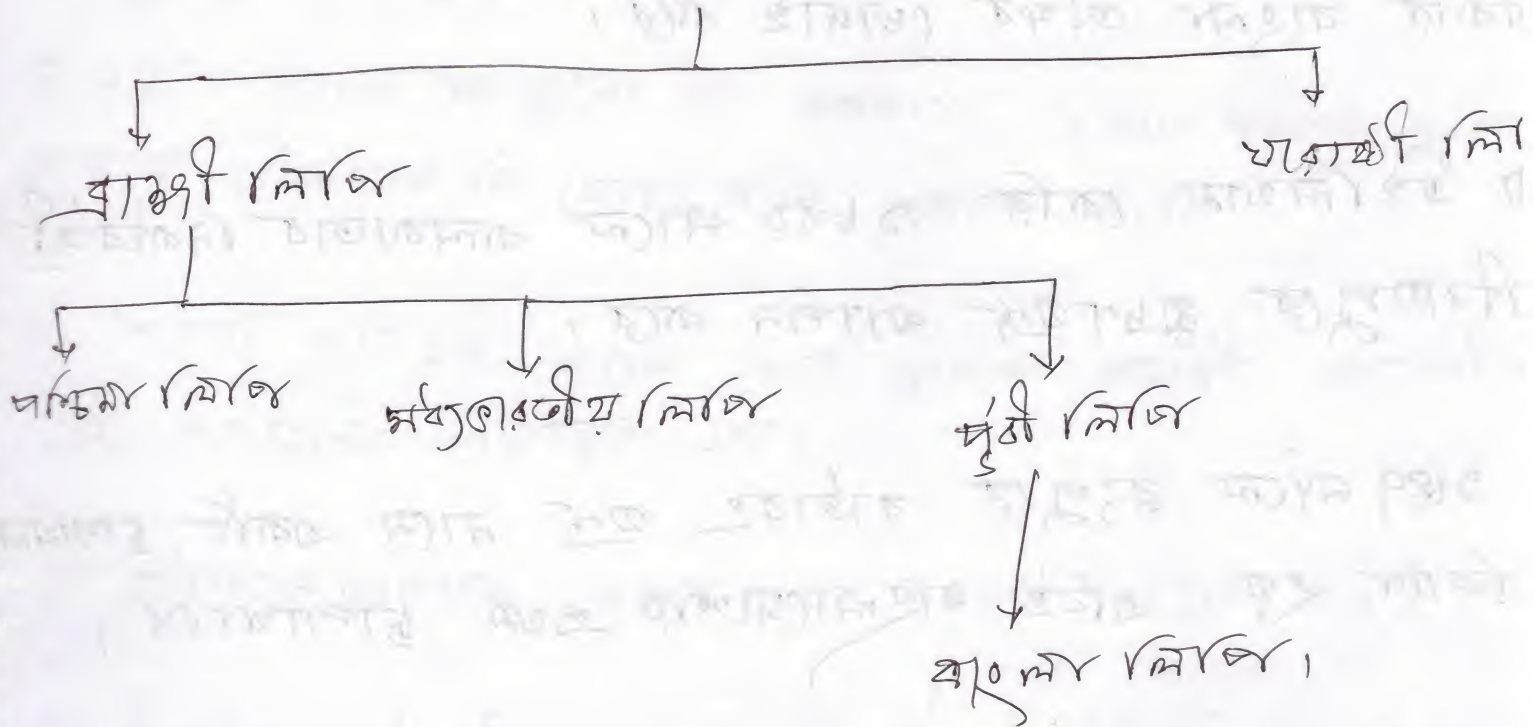 ব্রাহ্মী লিপি
খরোষ্ঠী লি
পশ্চিমা লিপি
মধ্যভারতীয় লিপি
পূর্বী লিপি
বাংলা লিপি।